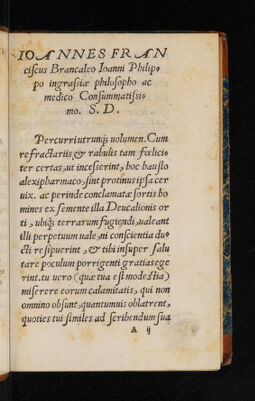 IOANNES FRAN
ciscus Brancaleo Ioanni Philip-
po ingrassiæ philosopho ac
medico Consummatissi-
mo. S. D.
Percurri utrunq; uolumen. Cum
refractariis, & rabulis tam fœlici-
ter certas, ut incesserint, hoc hausto
alexipharmaco, sint protinus ipsa cer
uix. ac perinde conclamatæ sortis ho
mines ex semente illa Deucalionis or
ti, ubiq; terrarum fugiendi, ualeant
illi perpetuum uale, ni conscientia du-
cti resipuerint, & tibi insuper salu
tare poculum porrigenti gratias ege
rint. tu uero (quæ tua est modestia)
miserere eorum calamitatis, qui non
omnino obsunt, quantumuis oblatrent,
quoties tui similes ad scribendum sua
A ij